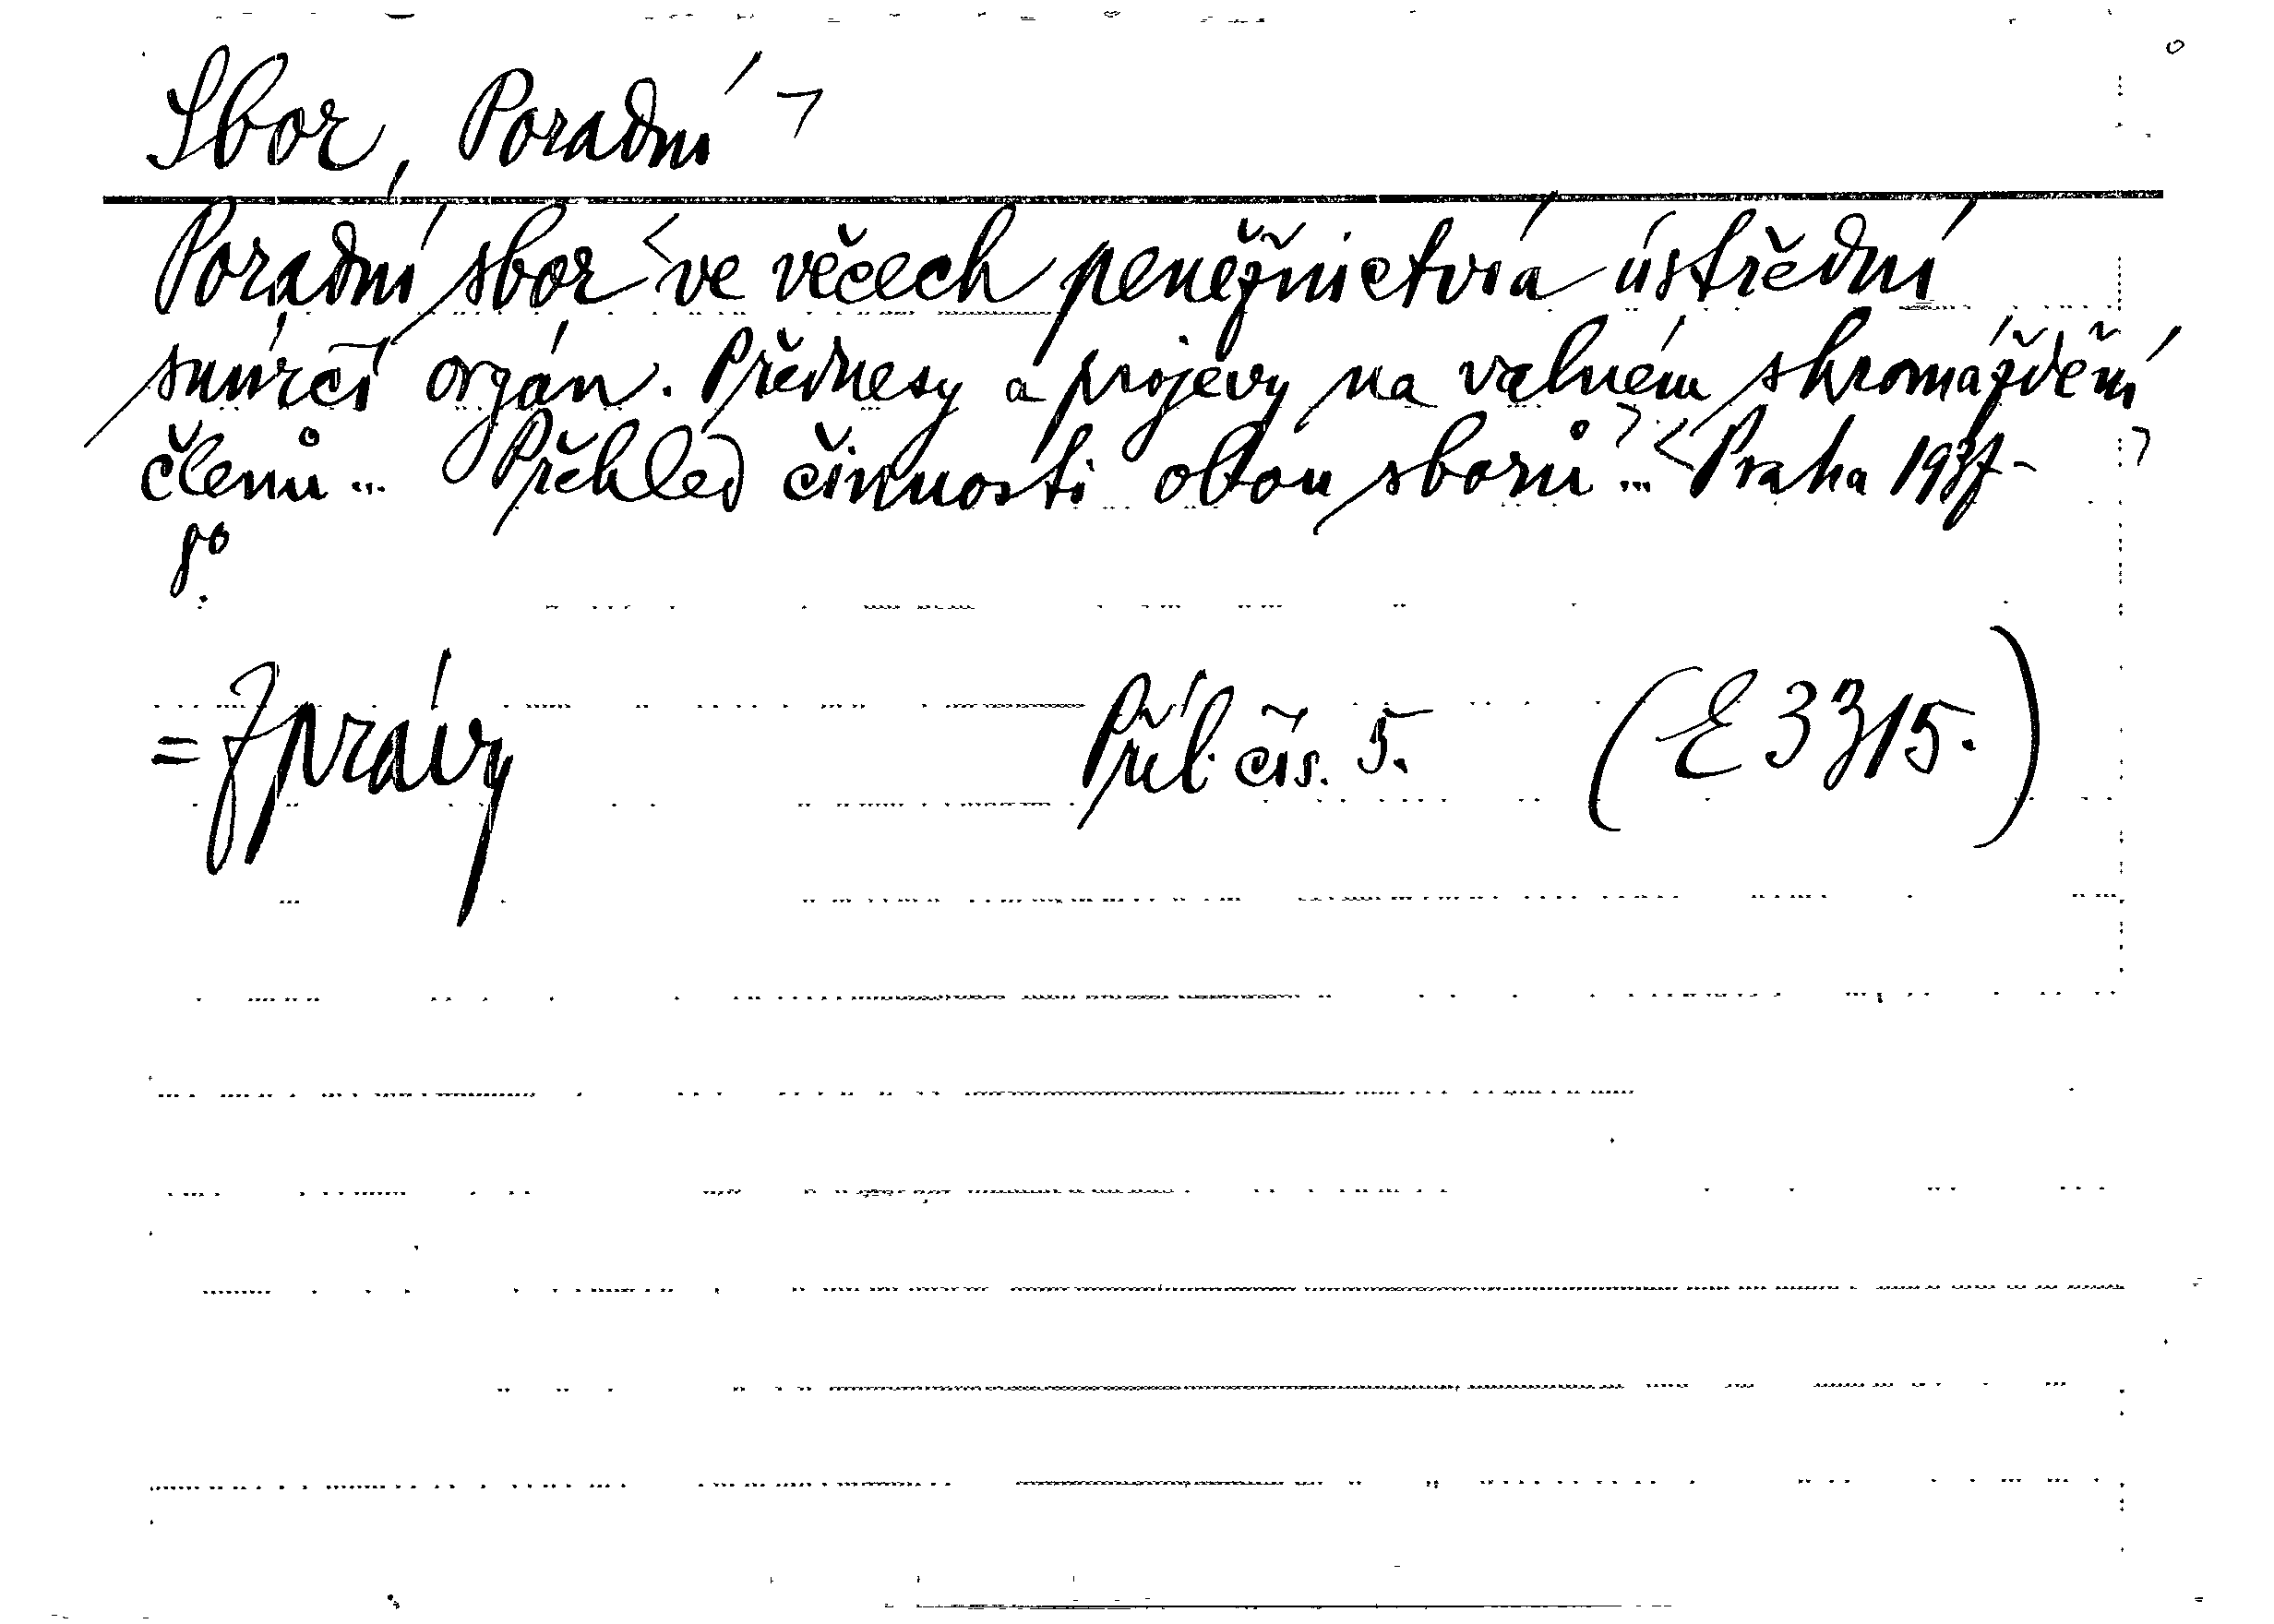 Sbor, Poradní ¬
Poradní sbor < ve věcech peněžnictví a ústřední
smírčí orgán. Přednesy a projevy na valném shromáždění
členů ... Přehled činnosti obou sborů ¬ ... < Praha 1937- ¬
8°.
= Zprávy Příl. čís. 5. (E 3315.)